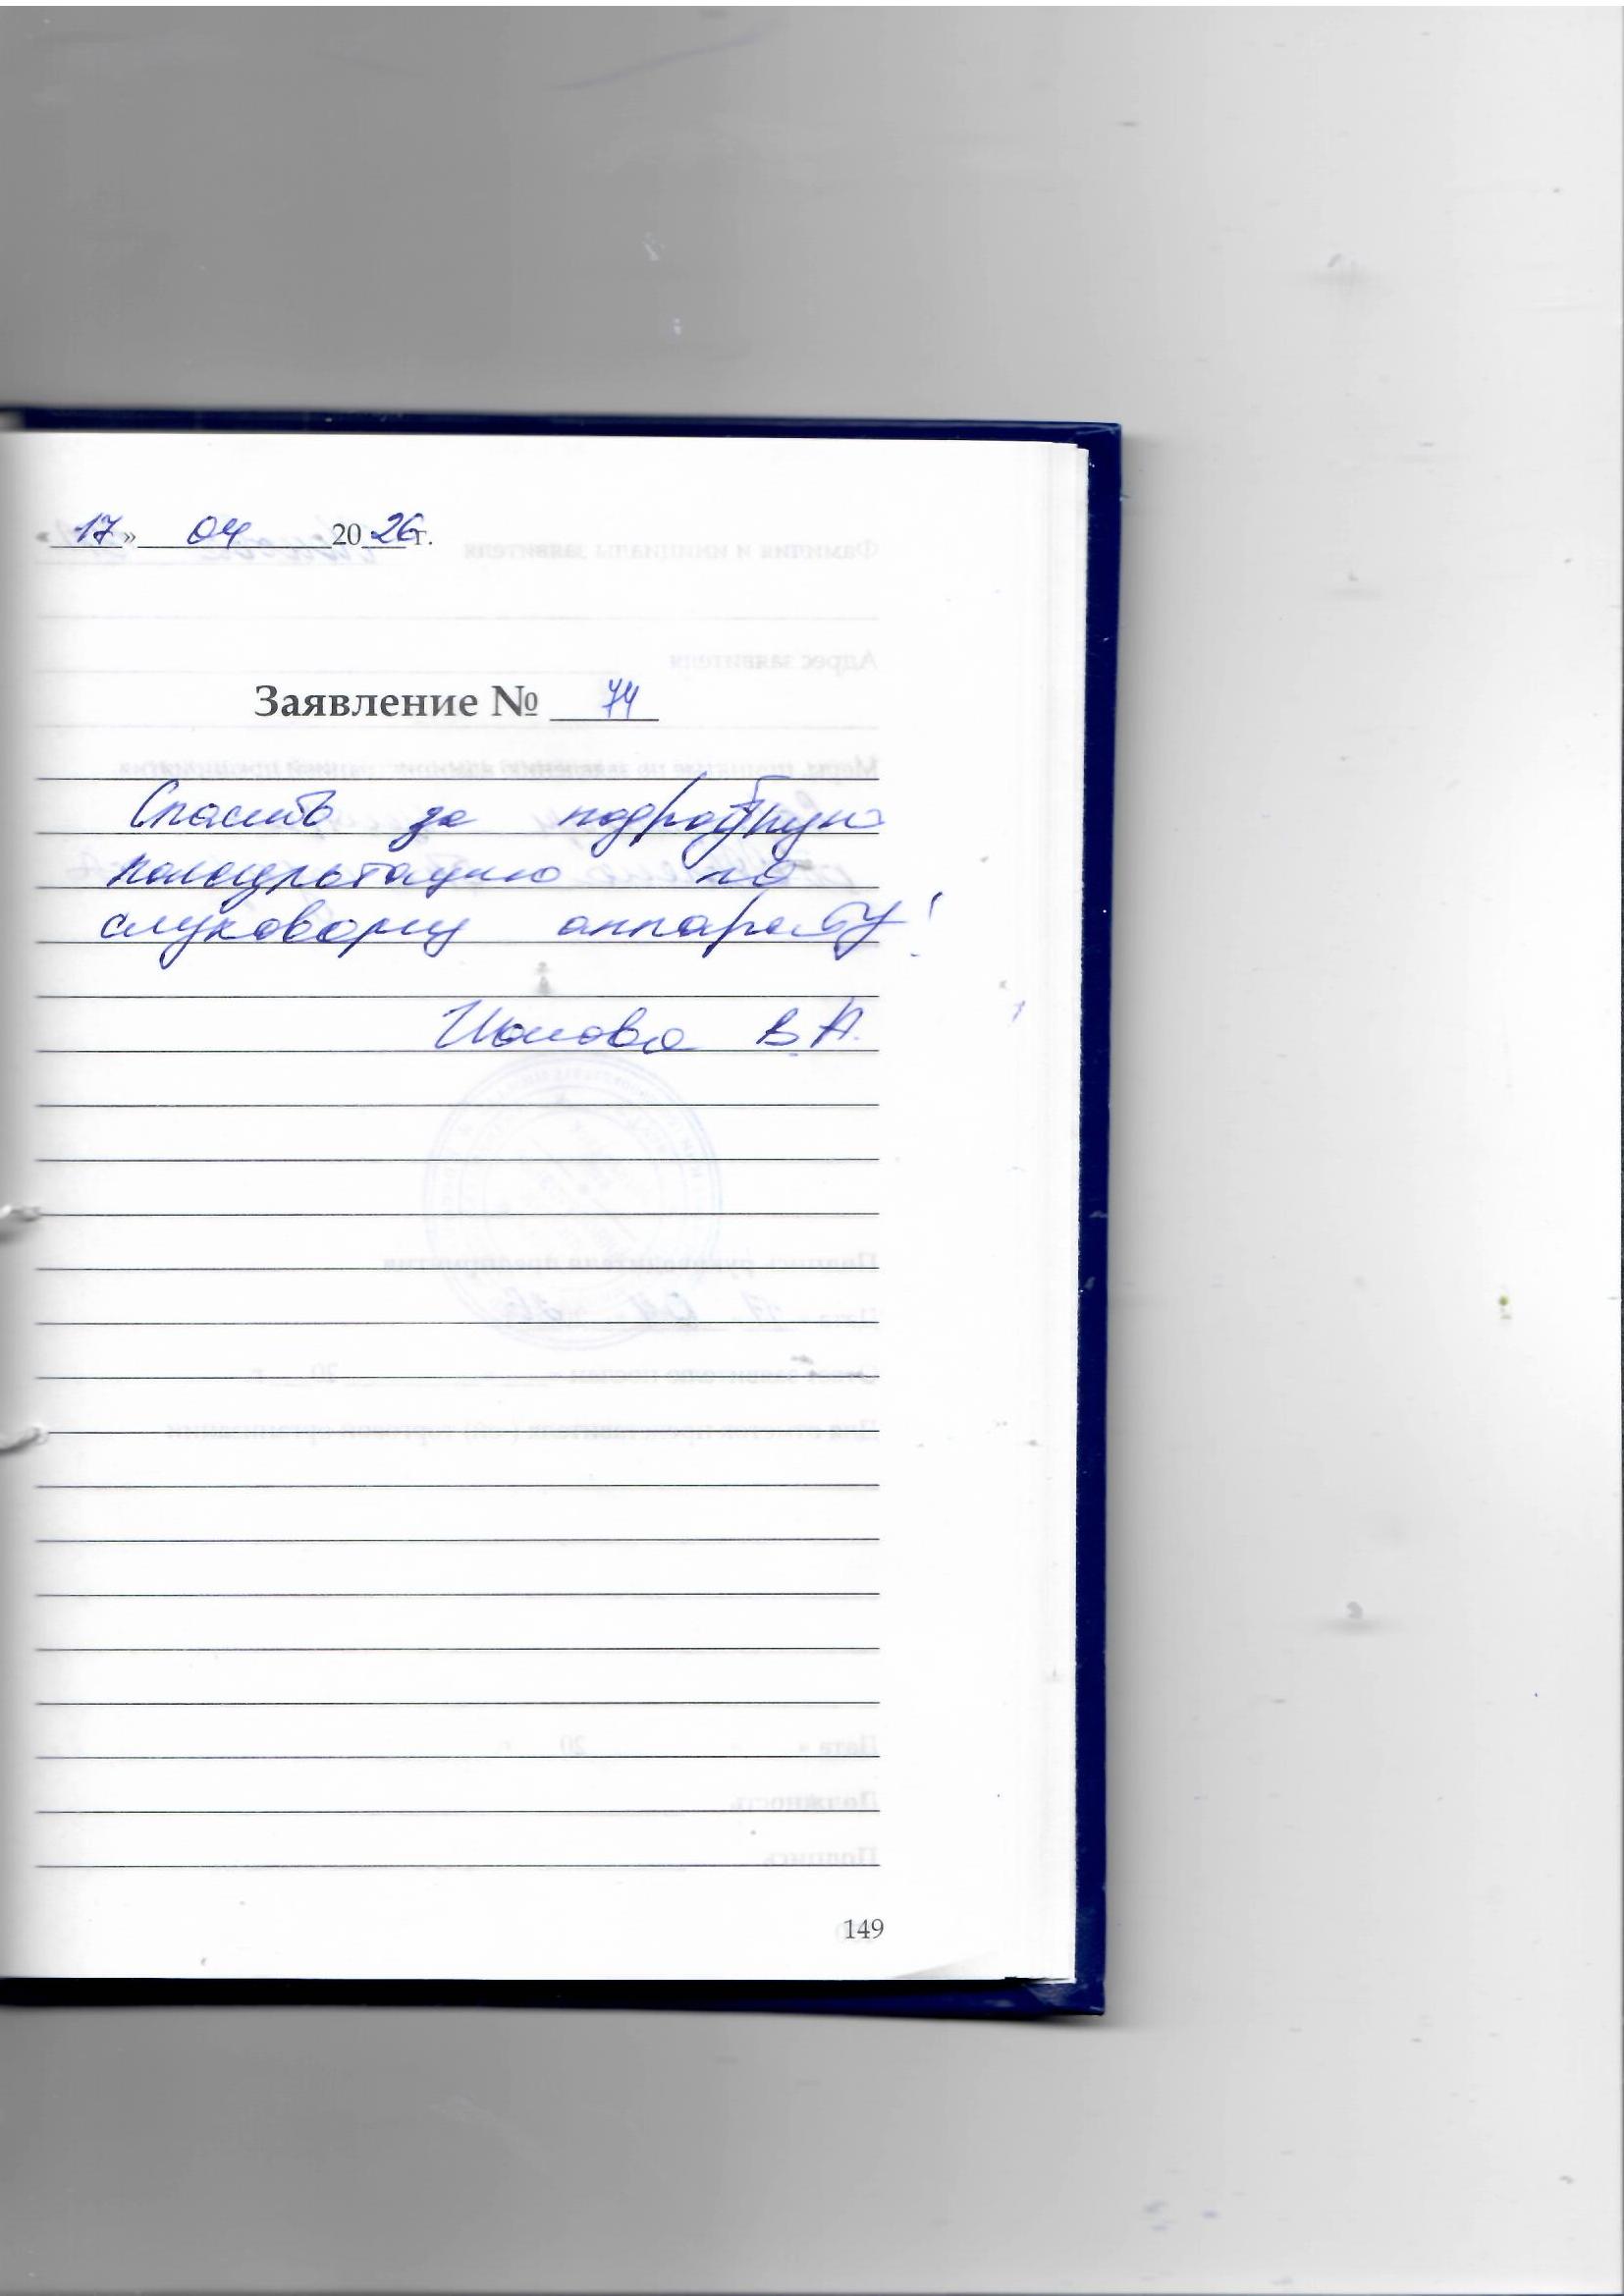 «17» 04 2026 г.
Заявление № 74
Спасибо за подробную
консультацию по
слуховому аппарату!
В.А.
149